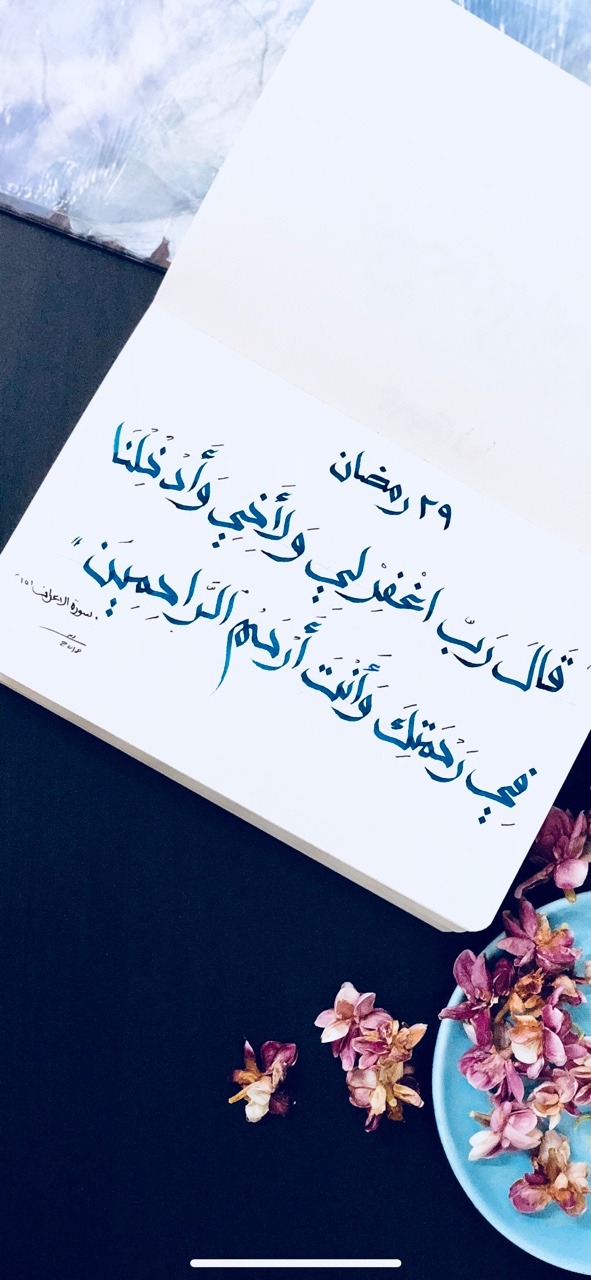 ٢٩ رمضان
قَالَ رَبِّ اغْفِرْ لِي وَلِأَخِي وَأَدْخِلْنَا
فِي رَحْمَتِكَ وَأَنْتَ أَرْحَمُ الرَّاحِمِينَ"
سورة الاعراف ١٥١